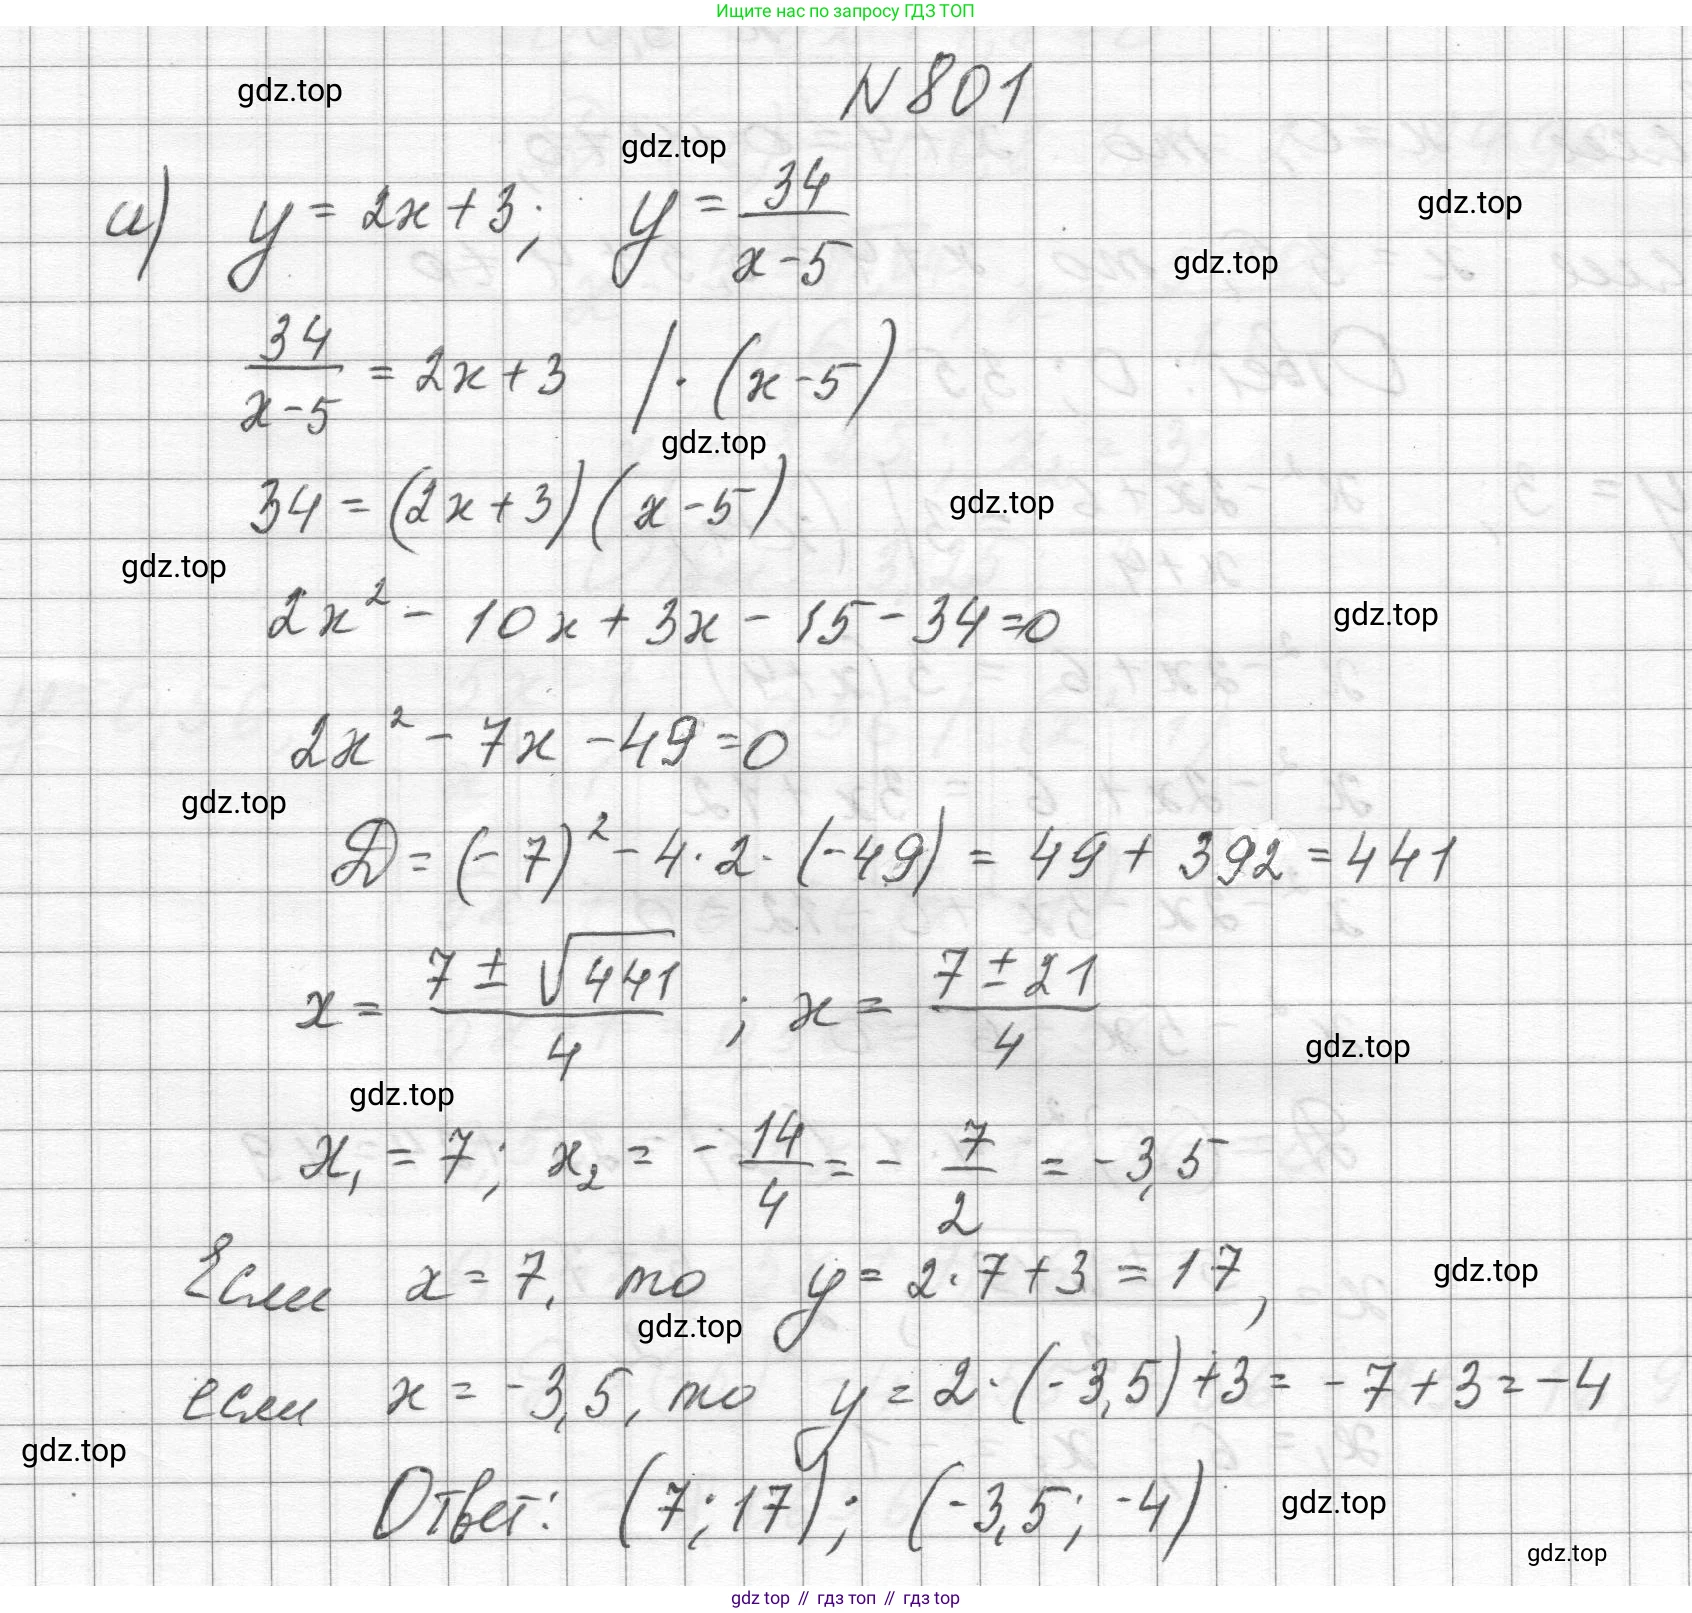 Ищите нас по запросу ГДЗ ТОП
N 801
gdz.top
gdz.top
а) y = 2x + 3; y = 34/(x - 5)
gdz.top
gdz.top
34/(x - 5) = 2x + 3 | · (x - 5)
gdz.top
34 = (2x + 3)(x - 5)
gdz.top
gdz.top
2x² - 10x + 3x - 15 - 34 = 0
gdz.top
2x² - 7x - 49 = 0
gdz.top
D = (-7)² - 4 · 2 · (-49) = 49 + 392 = 441
x = (7 ± √441)/4 ; x = (7 ± 21)/4
gdz.top
gdz.top
x₁ = 7; x₂ = - 14/4 = - 7/2 = -3,5
Если x = 7, то y = 2 · 7 + 3 = 17,
gdz.top
gdz.top
если x = -3,5, то y = 2 · (-3,5) + 3 = -7 + 3 = -4
gdz.top
Ответ: (7; 17); (-3,5; -4)
gdz.top
gdz.top
gdz top // гдз топ // гдз top